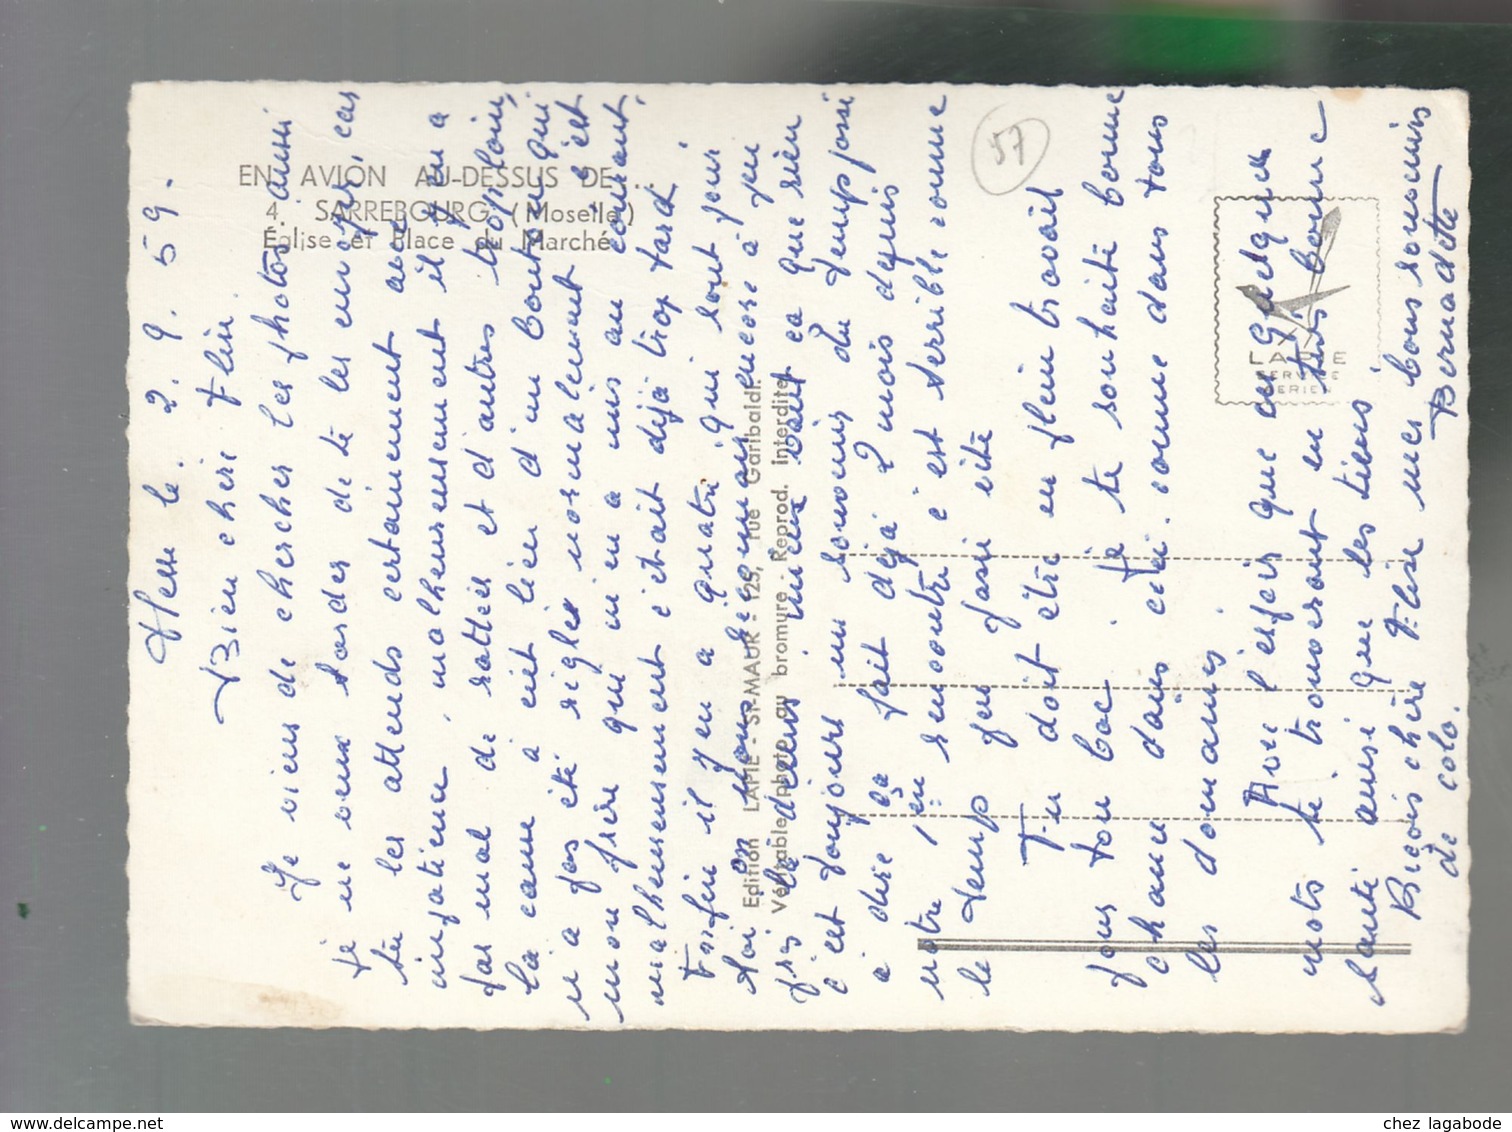 EN AVION AU-DESSUS DE...
4. SARREBOURG (Moselle)
Église et Place du Marché
Hesse le 2.9.59.
Bien chère Fleur.
Je viens de chercher les photos aussi
je ne veux tarder de te les envoyer, car
tu les attends certainement avec
impatience, malheureusement il y en a
pas mal de ratées et d'autres trop loin,
la came a eut lieu d'un bouton qui
n'a pas été réglé normalement c'est
mon frère qui m'en a mis au courant,
malheureusement c'était déjà trop tard
Enfin il y en a quatre qui sont pour
toi, on nous reconnais encore à peu
près le dessus mieux vaut ça que rien
c'est toujours un souvenir du temps passé
à dire ça fait déjà 2 mois depuis
notre rencontre, c'est terrible comme
le temps peu passé vite
Tu doit être en plein travail
pour ton bac. Je te souhaite bonne
chance dans celui-ci comme dans tous
les domaines.
Avec l'espoir que ces quelques
mots te trouveront en très bonne
santé ainsi que les tiens
Reçois chère Fleur mes bons souvenirs
de colo. Bernadette
Edition LAPIE - ST-MAUR - 125, rue Garibaldi.
Véritable photo au bromure - Reprod. Interdite
57
LAPIE
SERVICE
AERIEN
chez lagabode